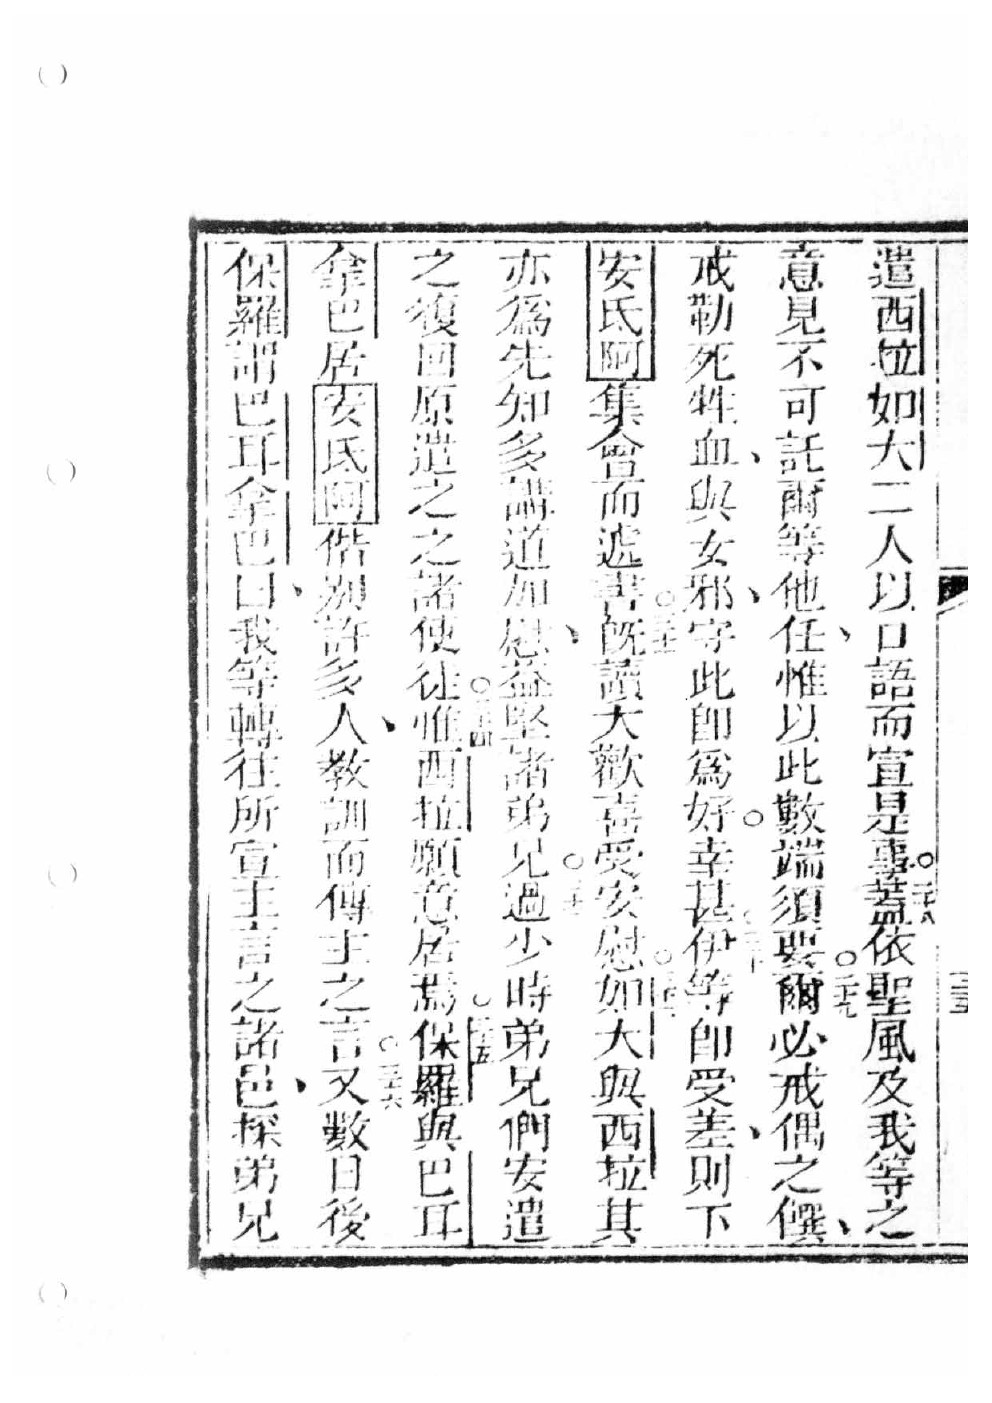 遣西拉如大二人以口語而宣是事○二十八蓋依聖風及我等之
意見不可託爾等他任惟以此數端須要爾○二十九必戒偶之饌
戒勒死牲血與女邪守此卽爲好○幸甚○三十伊等卽受差則下
安氐阿集會而遞書○三十一旣讀大歡喜受安慰○三十二如大與西拉其
亦爲先知多講道加慰益堅諸弟兄○三十三過少時弟兄們安遣
之復回原遣之之諸使徒○三十四惟西拉願意居焉○三十五保羅與巴耳
拿巴居安氐阿偕別許多人教訓而傳主之言○三十六又數日後
保羅謂巴耳拿巴曰我等轉往所宣主言之諸邑探弟兄